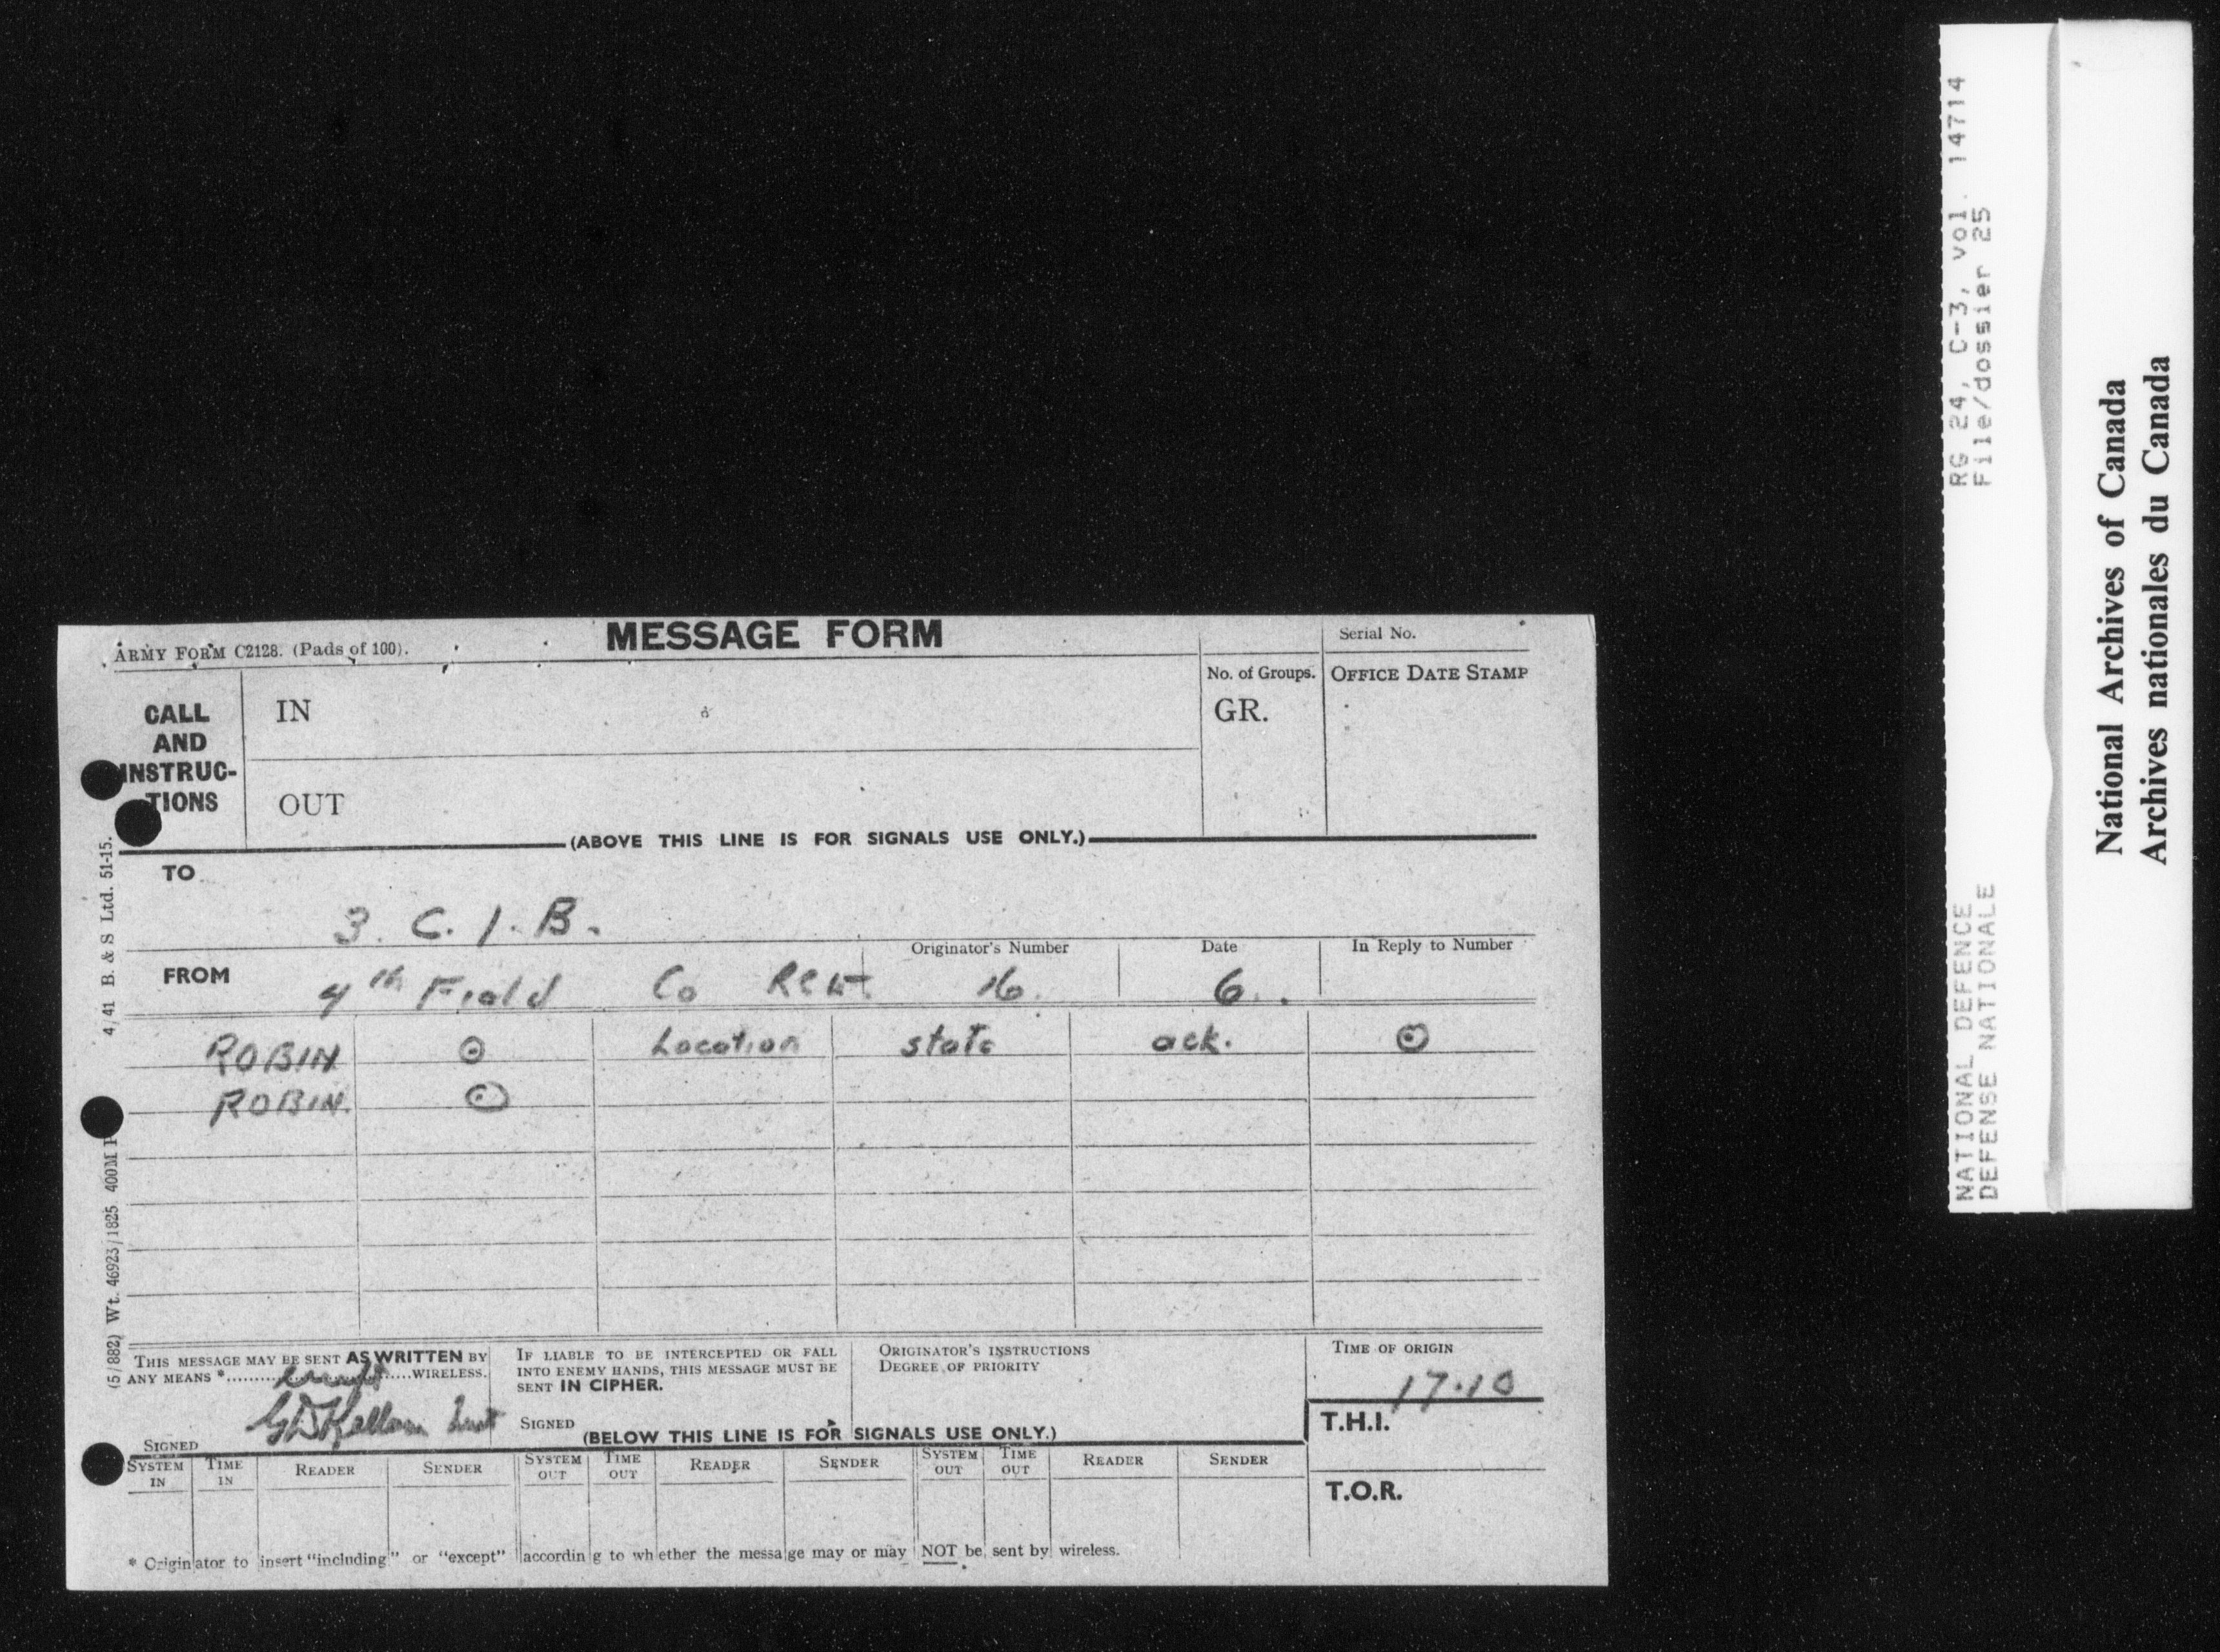 MESSAGE FORM
ARMY FORM C2128. (Pads of 100).
Serial No.
CALL AND INSTRUC-TIONS
IN
OUT
No. of Groups.
GR.
OFFICE DATE STAMP
(ABOVE THIS LINE IS FOR SIGNALS USE ONLY.)
TO
3. C. I. B.
FROM
4th Field Co RCE
Originator's Number
16.
Date
6.
In Reply to Number
ROBIN ⊙ Location state ack. ⊙
ROBIN. ⊙
THIS MESSAGE MAY BE SENT AS WRITTEN BY
ANY MEANS * except WIRELESS.
SIGNED
IF LIABLE TO BE INTERCEPTED OR FALL
INTO ENEMY HANDS, THIS MESSAGE MUST BE
SENT IN CIPHER.
SIGNED
ORIGINATOR'S INSTRUCTIONS
DEGREE OF PRIORITY
TIME OF ORIGIN
17.10
T.H.I.
T.O.R.
(BELOW THIS LINE IS FOR SIGNALS USE ONLY.)
SYSTEM IN TIME IN READER SENDER SYSTEM OUT TIME OUT READER SENDER SYSTEM OUT TIME OUT READER SENDER
* Originator to insert "including" or "except" according to whether the message may or may NOT be sent by wireless.
(5/882) Wt. 46923/1825 400M 4/41 B. & S Ltd. 51-15.
RG 24, C-3, vol. 14714
File/dossier 25
NATIONAL DEFENCE
DEFENSE NATIONALE
National Archives of Canada
Archives nationales du Canada